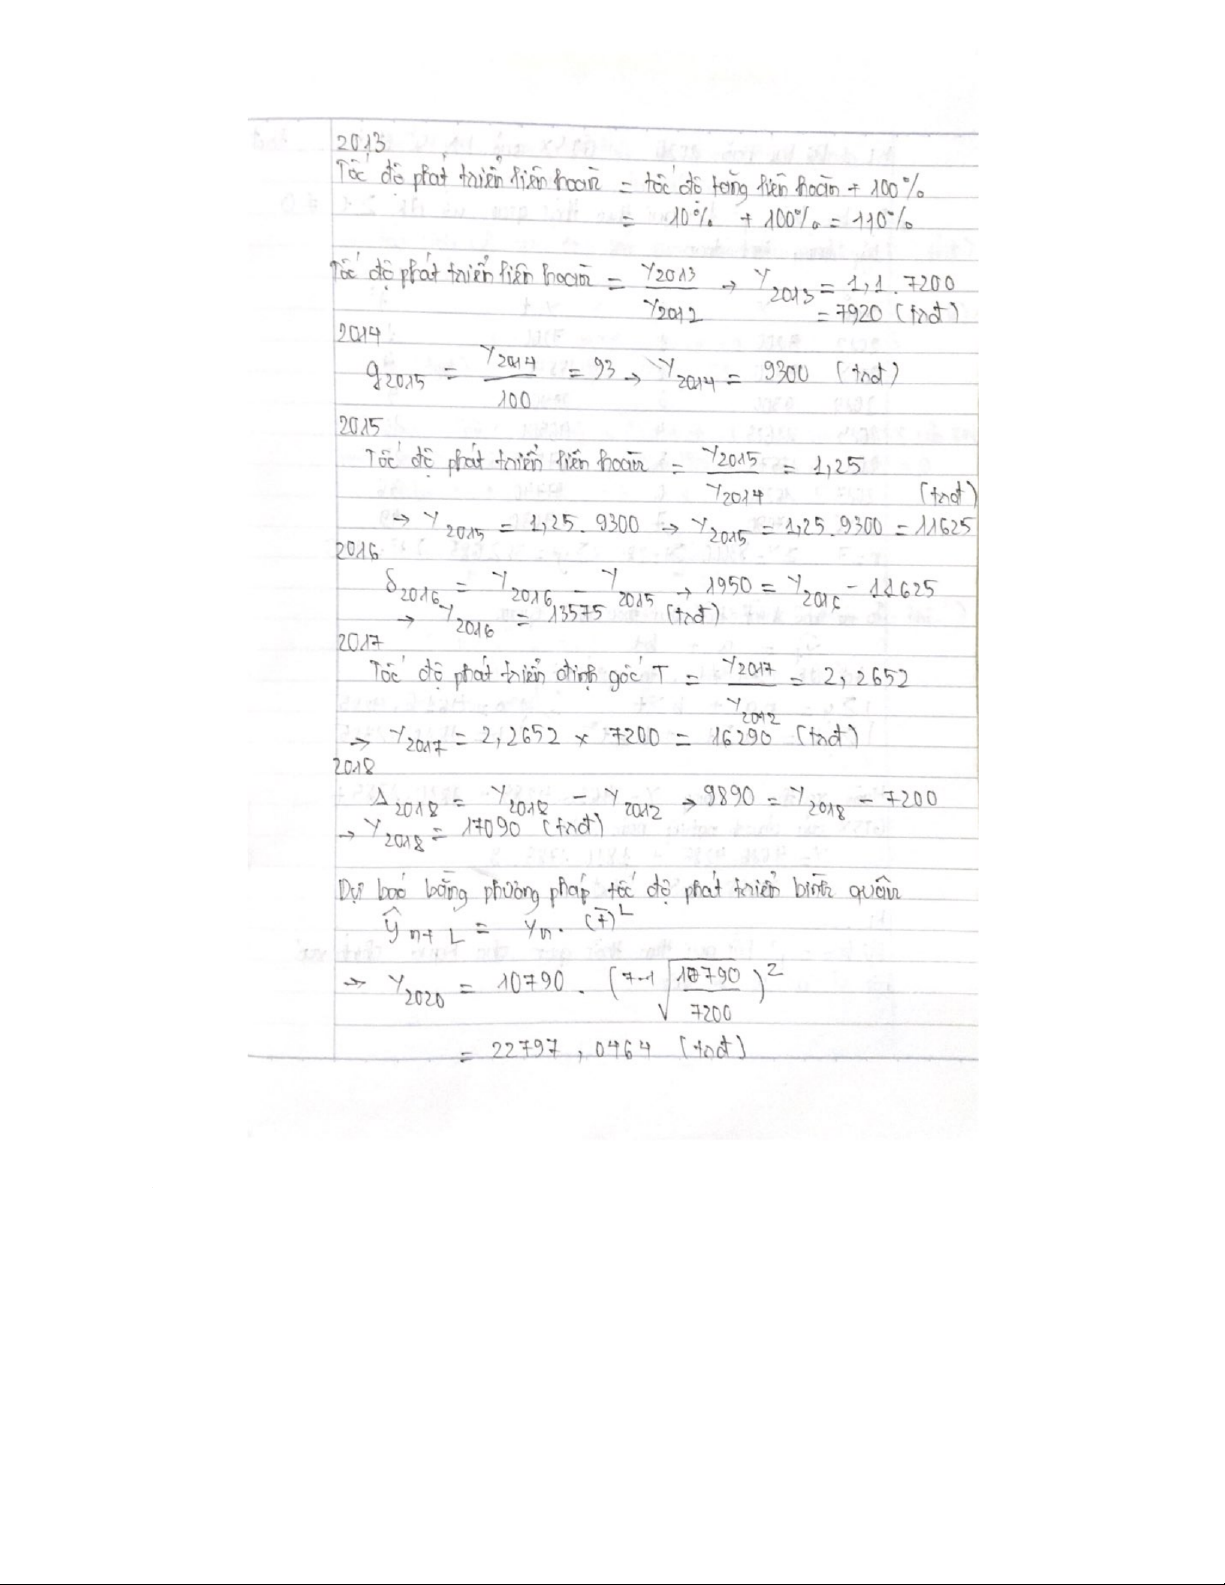 2013
Tốc độ phát triển liên hoàn = tốc độ tăng liên hoàn + 100%
= 10% + 100% = 110%
Tốc độ phát triển liên hoàn = Y2013 / Y2012 → Y2013 = 1,1 . 7200
= 7920 (tnđ)
2014
g2015 = Y2014 / 100 = 93 → Y2014 = 9300 (tnđ)
2015
Tốc độ phát triển liên hoàn = Y2015 / Y2014 = 1,25
(tnđ)
→ Y2015 = 1,25 . 9300 → Y2015 = 1,25 . 9300 = 11625
2016
δ2016 = Y2016 - Y2015 → 1950 = Y2016 - 11625
→ Y2016 = 13575 (tnđ)
2017
Tốc độ phát triển định gốc T = Y2017 / Y2012 = 2,2652
→ Y2017 = 2,2652 × 7200 = 16290 (tnđ)
2018
Δ2018 = Y2018 - Y2012 → 9890 = Y2018 - 7200
→ Y2018 = 17090 (tnđ)
Dự báo bằng phương pháp tốc độ phát triển bình quân
ŷn+L = yn . (t̄)^L
→ Y2020 = 10790 . (7-1√(10790 / 7200))^2
= 22797,0464 (tnđ)